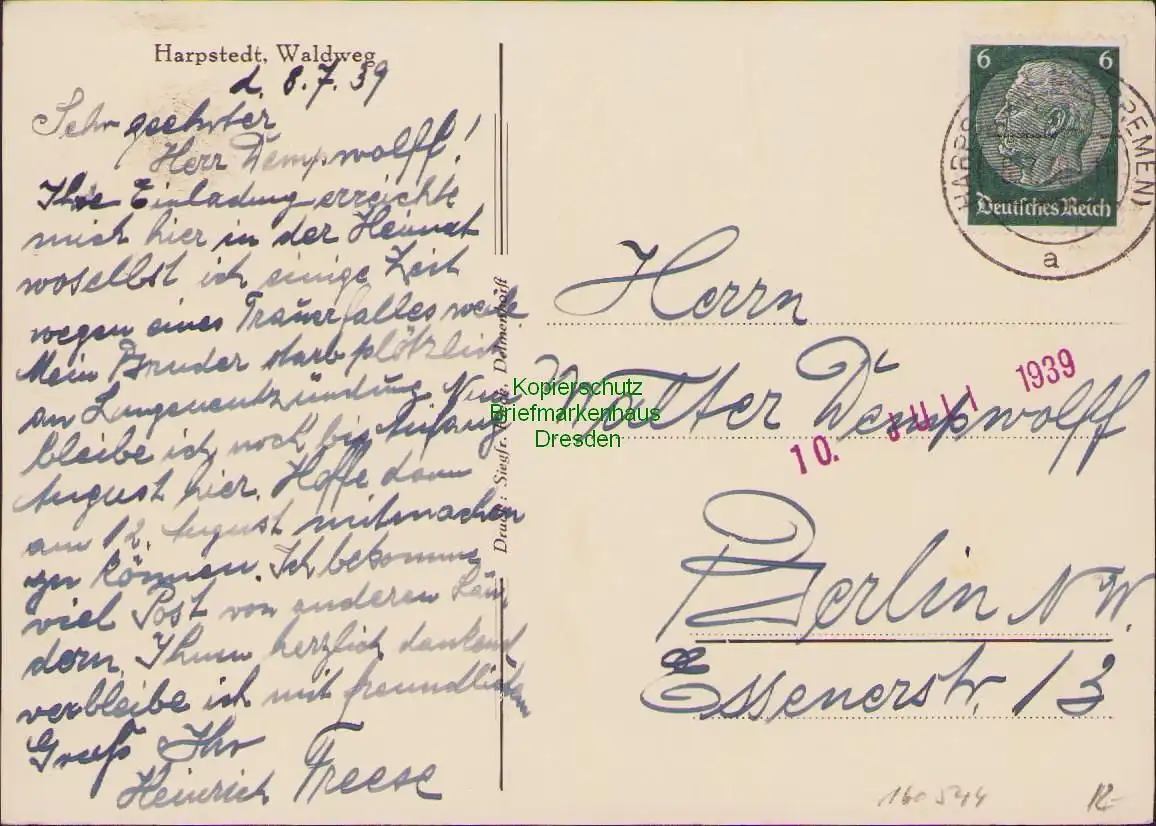 Harpstedt, Waldweg
d. 8.7.39
Sehr geehrter
Herr Dempwolff!
Ihre Einladung erreichte
mich hier in der Heimat
woselbst ich einige Zeit
wegen eines Trauerfalles weile
Mein Bruder starb plötzlich
an Lungenentzündung Nun
bleibe ich noch bis Anfang
August hier. Hoffe dann
am 12. August mitmachen
zu können. Ich bekomme
viel Post von anderen Län
dern. Ihnen herzlich dankend
verbleibe ich mit freundlichem
Gruß Ihr
Heinrich Freese
Druck: Siegfr. Delmenhorst
6 6
Deutsches Reich
HARPSTEDT (BREMEN)
a
Herrn
Walter Dempwolff
10. JULI 1939
Berlin NW.
Essenerstr. 13
Kopierschutz
Briefmarkenhaus
Dresden
160544
12-